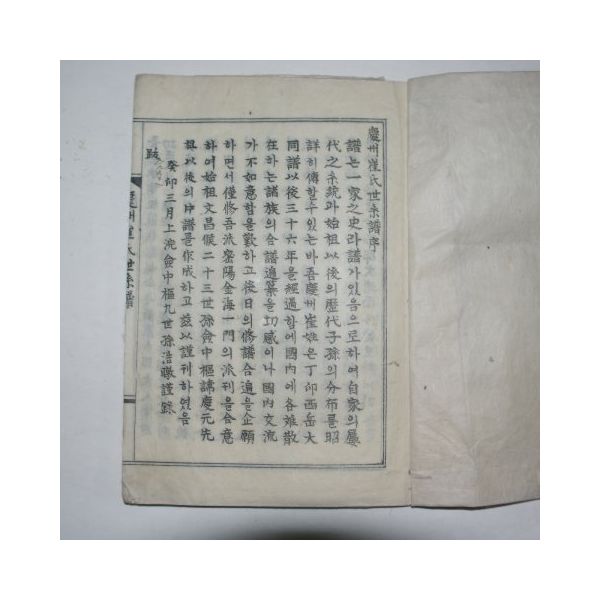 慶州崔氏世系譜序
譜는一家之史라譜가있음으로하여自家의屢
代之系統과始祖以後의歷代子孫의分布를昭
詳히傳할수있는바吾慶州崔姓은丁卯西岳大
同譜以後三十六年을經過함에國內에各雉散
在하는諸族의合譜追纂을切感이나國內交流
가不如意함을歎하고後日의修譜合追을企願
하면서僅修吾派密陽金海一門의派刊을合意
하여始祖文昌候二十三世孫僉中樞諱慶元先
祖以後의日譜을作成하고玆以謹刊하였음
癸卯三月上浣僉中樞九世孫浩 謹錄
跋
慶州崔氏世系譜